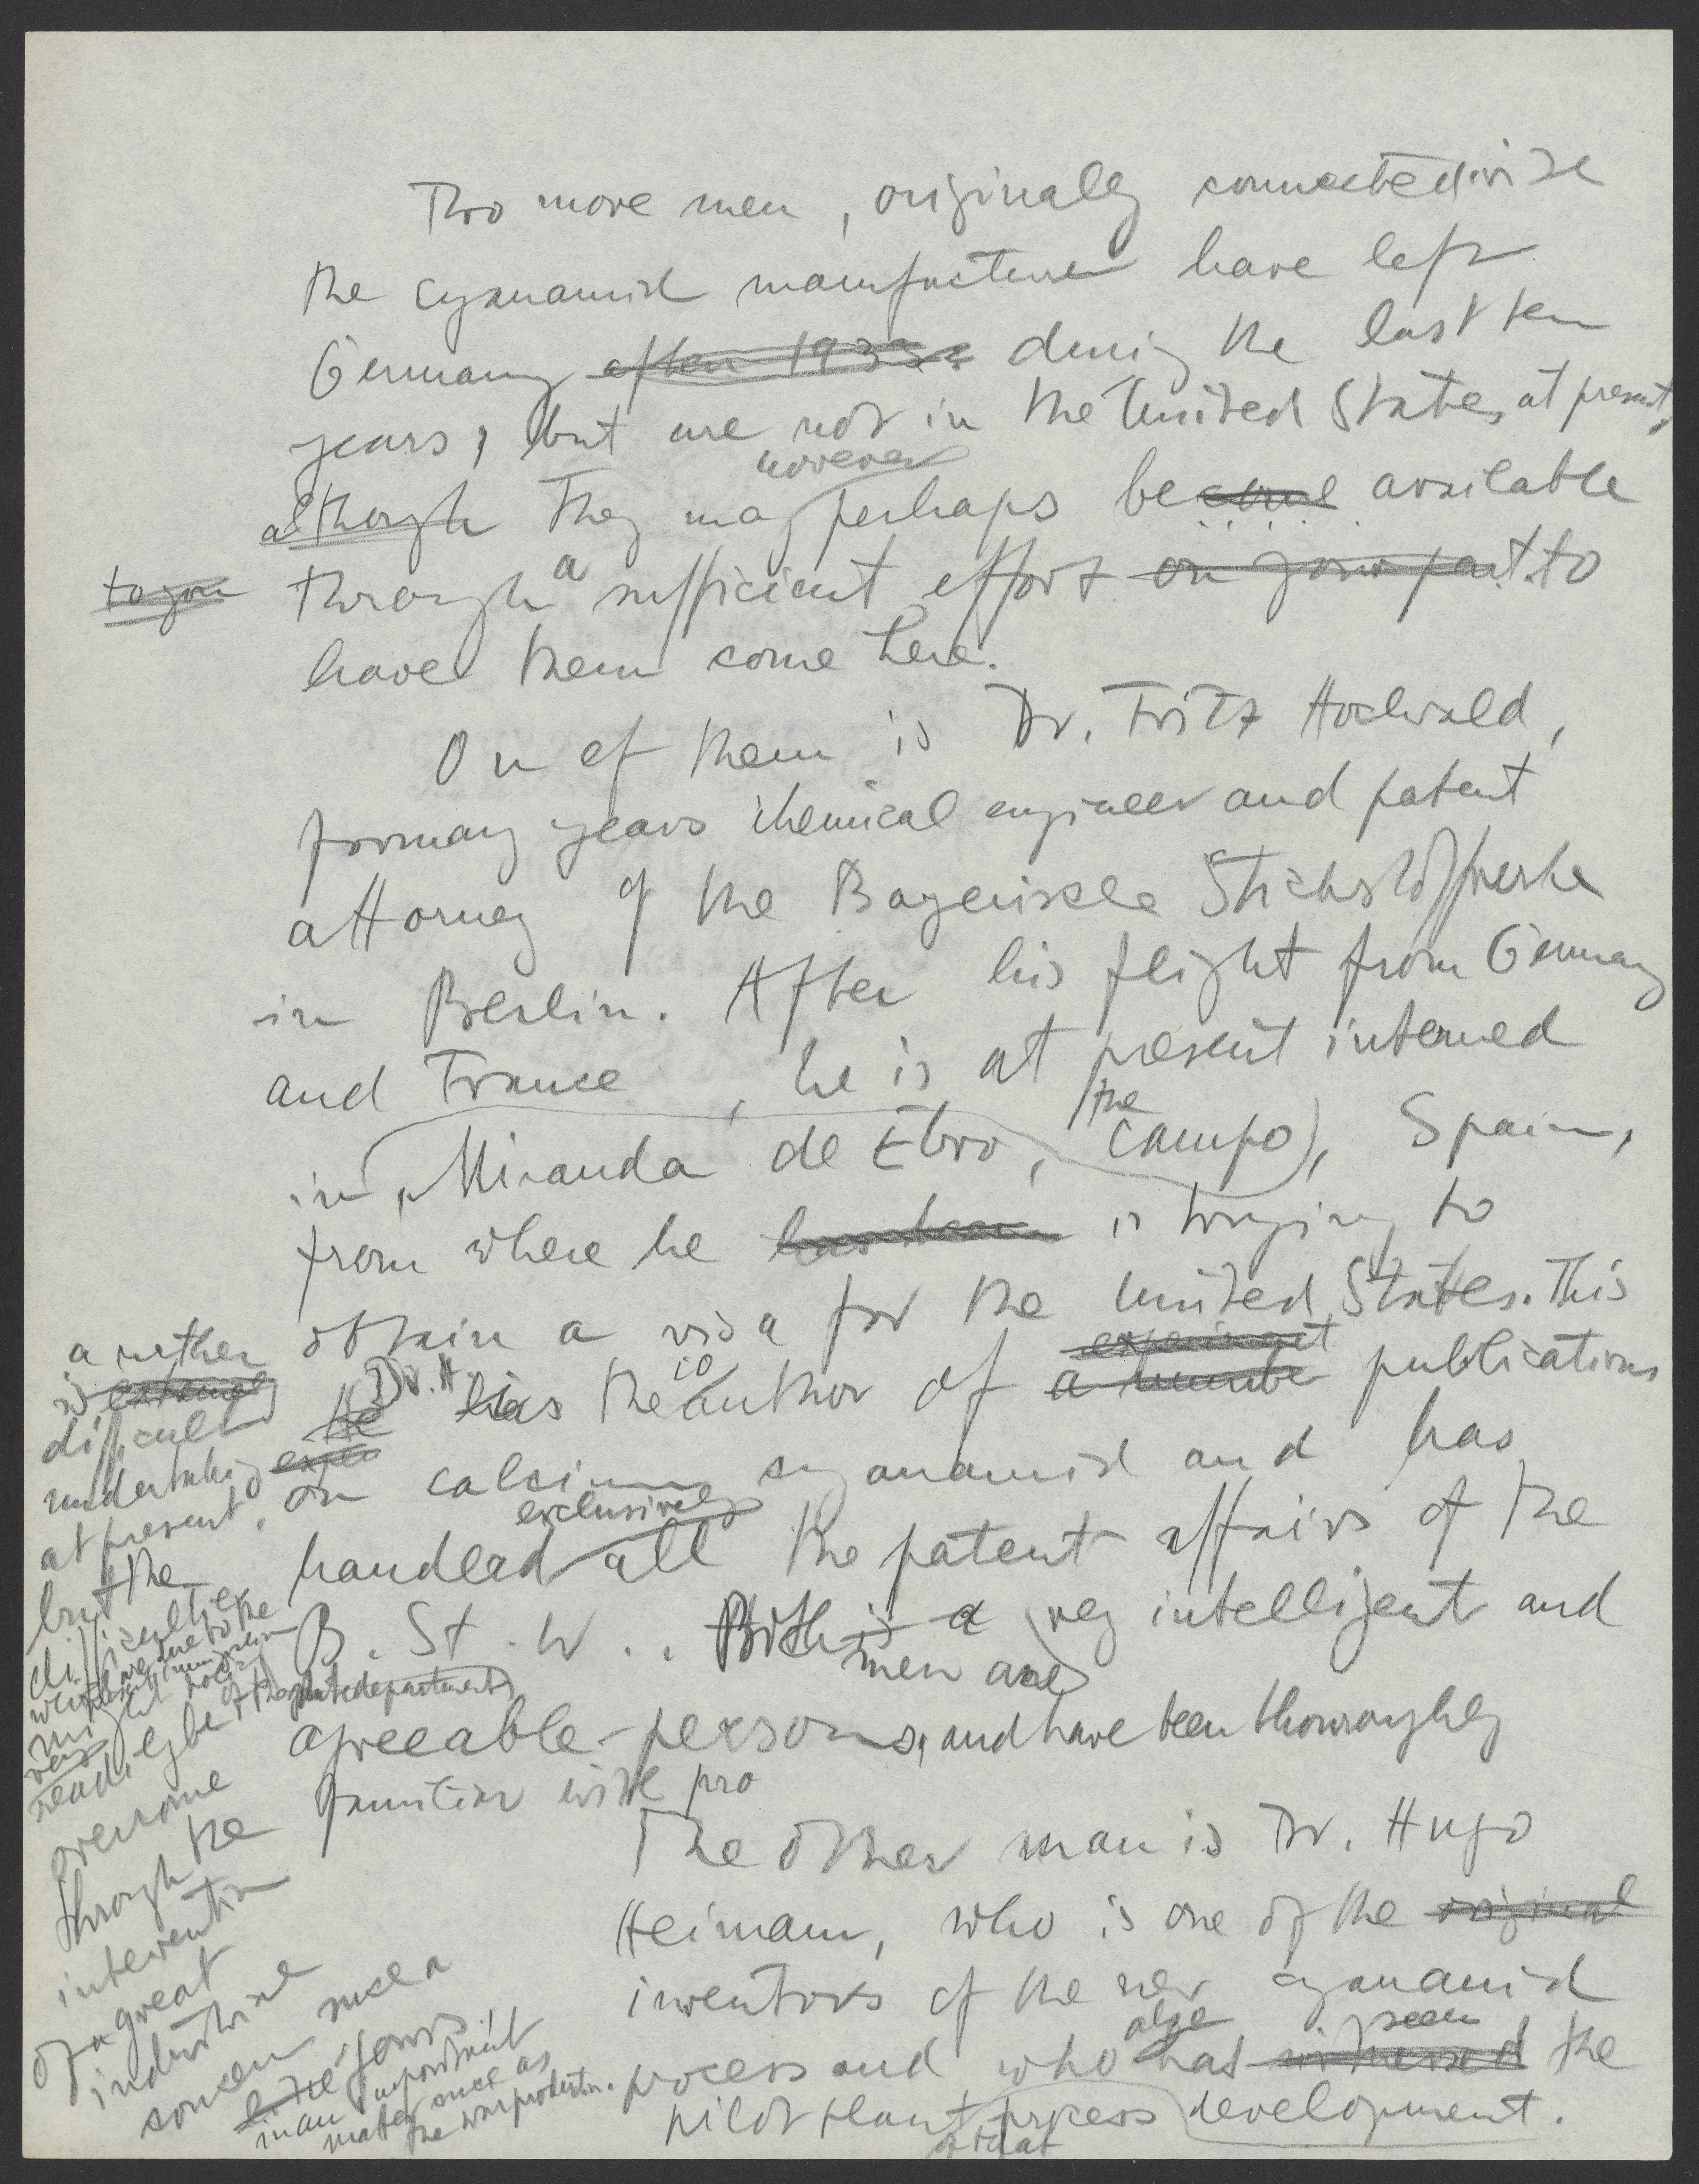 Two more men, originally connected with
the cyanamid manufacture have left
Germany after 1933 during the last ten
years, but are not in the United States at present,
although they may however perhaps become available
to you through a sufficient effort on your part to
have them come here.
On of them is Dr. Fritz Hochwald,
for many years chemical engineer and patent
attorney of the Bayerische Stickstoffwerke
in Berlin. After his flight from Germany
and France, he is at present interned
in Miranda de Ebro, (the campo), Spain,
from where he has been is trying to
obtain a visa for the United States. This
is extremely a rather
difficult
undertaking
at present,
but the
difficulties
which are due to the
might
readily be
overcome
through the
intervention
of a great
industrial
concern such a
like yours
in an important
matter such as
the war production.
of the state department
He Dr. H. has is the author of a number experiment publications
on calcium cyanamid and has
handled exclusively all the patent affairs of the
B. St. W.. Both is a men are very intelligent and
agreeable persons, and have been thouroughly
familiar with pro
The other man is Dr. Hugo
Heimann, who is one of the original
inventors of the new cyanamid
process and who also has witnessed seen the
pilot plant process development.
of that